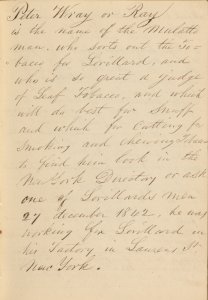 Peter Wray or Ray
is the name of the Mulatto
man, who sorts out the To-
bacco for Lorillard, and
who is so great a judge
of Leaf Tobacco, and which
will do best for Snuff
and which for Cutting for
Smoking and chewing
to find him look in the
New York Directory or ask
one of Lorillards men
27 december 1842, he was
working for Lorillard in
his Factory in Laurens St
New York.